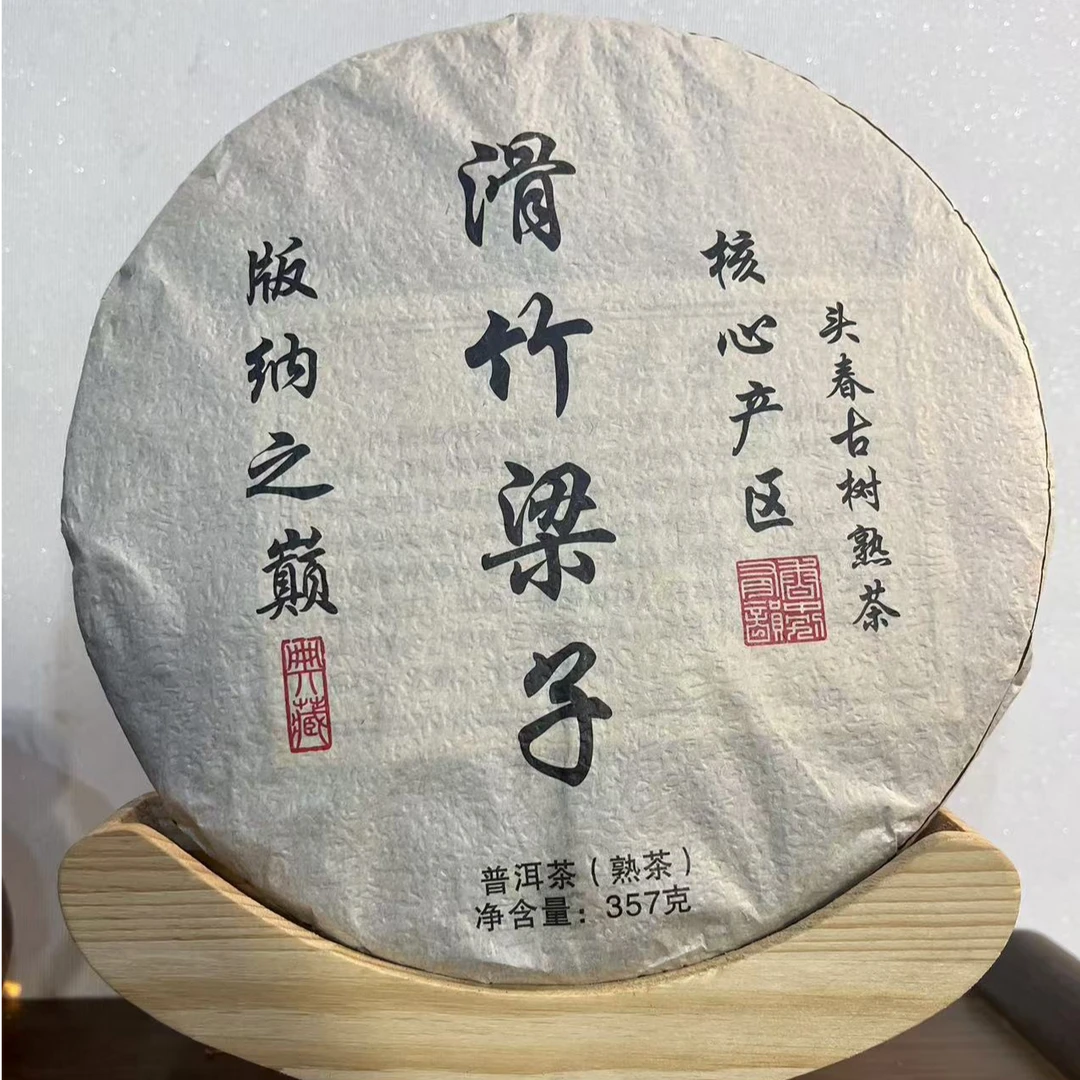 头春古树熟茶
核心产区
滑竹梁子
版纳之巅
典藏
普洱茶（熟茶）
净含量：357克